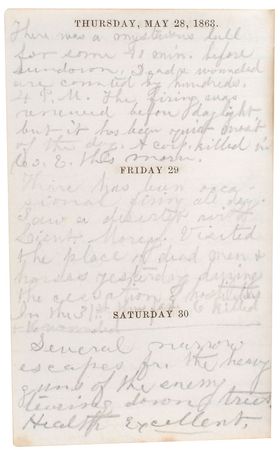 THURSDAY, MAY 28, 1863.
There was a mysterious lull
for some 90 min. before
sundown. Dead & wounded
are counted by hundreds.
4 P.M. The firing was
renewed before daylight
but it has been quiet most
of the day. A corp. killed in
Co. E. this morn.
FRIDAY 29
There has been occa-
sional firing all day.
Saw a deserter with
Lieut. Visited
the place of dead men &
horses yesterday during
the cessation of hostilities
In the 31st killed
& wounded
SATURDAY 30
Several narrow
escapes fr. the heavy
guns of the enemy
tearing down trees
Health Excellent.